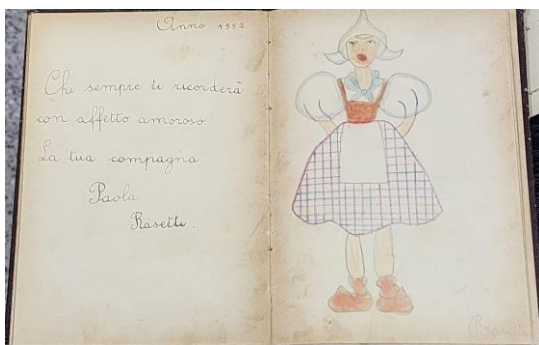 Anno 1952
Chi sempre ti ricorderà
con affetto amoroso
La tua compagna
Paola
Rasetti.